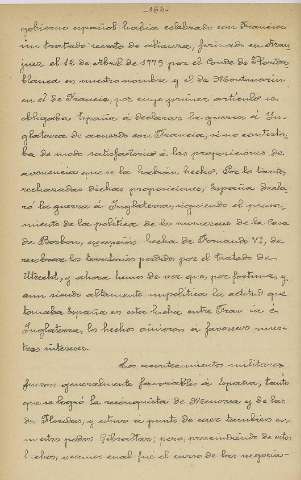 -166-
gobierno español había celebrado con Francia
un tratado secreto de alianza, firmado en Aran
juez, el 12 de Abril de 1779 por el Conde de Florida
blanca en nuestro nombre y el de Montmorin
en el de Francia, por cuyo primer artículo se
obligaba España á declarar la guerra á In
glaterra de acuerdo con Francia, si no contesta
ba de modo satisfactorio á las proposiciones de
avenencia que se la habían hecho. Por lo tanto,
rechazadas dichas proposiciones, España decla
ró la guerra á Inglaterra, siguiendo el pensa
miento de la política de los monarcas de la Casa
de Borbon, excepción hecha de Fernando VI, de
recobrar los territorios perdidos por el tratado de
Utrecht, y ahora hemos de ver que, por fortuna, y
aun siendo altamente impolítica la actitud que
tomaba España en esta lucha entre Francia é
Inglaterra, los hechos vinieron á favorecer nues
tros intereses.
Los acontecimientos militares
fueron generalmente favorables á España, tanto
que se logró la reconquista de Menorca y de las
dos Floridas, y estuvo á punto de caer tambien en
nuestro poder Gibraltar; pero, prescindiendo de estos
hechos, veamos cual fué el curso de las negocia-